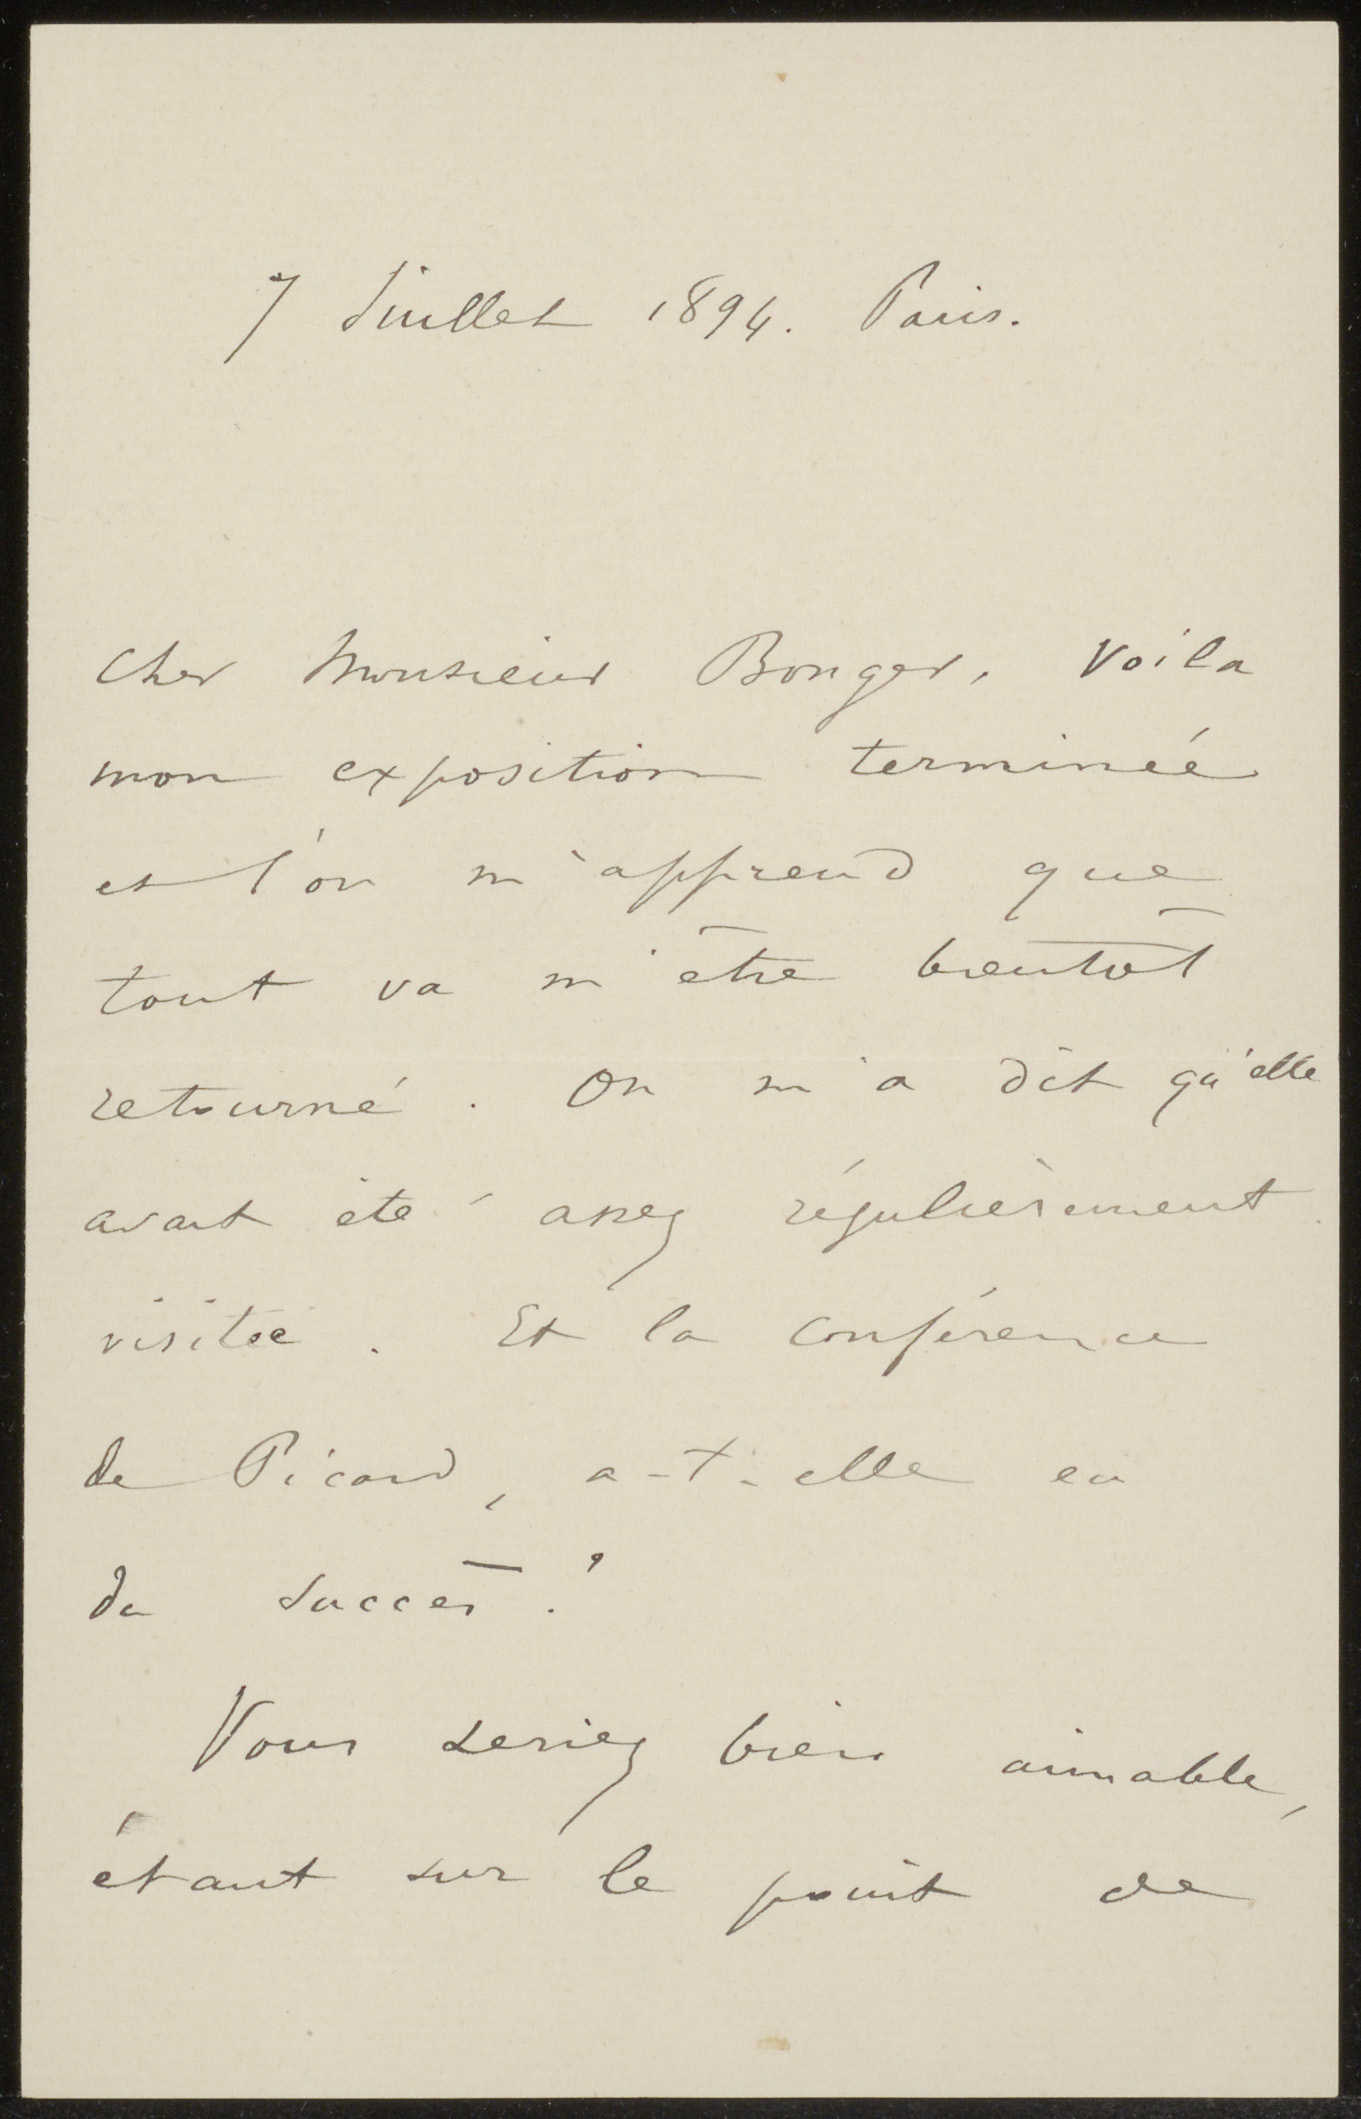 7 Juillet 1894. Paris.
Cher Monsieur Bonger, Voila
mon exposition terminée
et l'on m'apprend que
tout va m'être bientôt
retourné. On m'a dit qu'elle
avait été assez régulièrement
visitée. Et la conférence
de Picard, a-t-elle eu
du succès?
Vous seriez bien aimable,
étant sur le point de